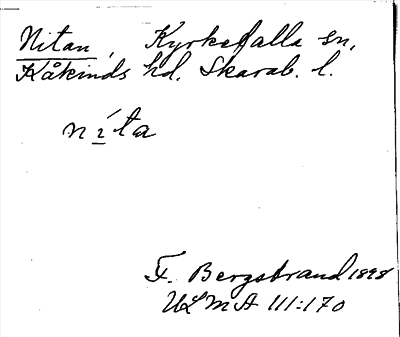 Nitan, Kyrkefalla sn,
Kåkinds hd. Skarab. l.
níta
F. Bergstrand 1898
ULMA 111:170